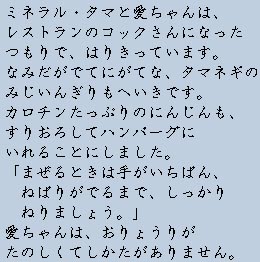 ミネラル・タマと愛ちゃんは、
レストランのコックさんになった
つもりで、はりきっています。
なみだがでてにがてな、タマネギの
みじんぎりもへいきです。
カロチンたっぷりのにんじんも、
すりおろしてハンバーグに
いれることにしました。
「まぜるときは手がいちばん、
　ねばりがでるまで、しっかり
　ねりましょう。」
愛ちゃんは、おりょうりが
たのしくてしかたがありません。